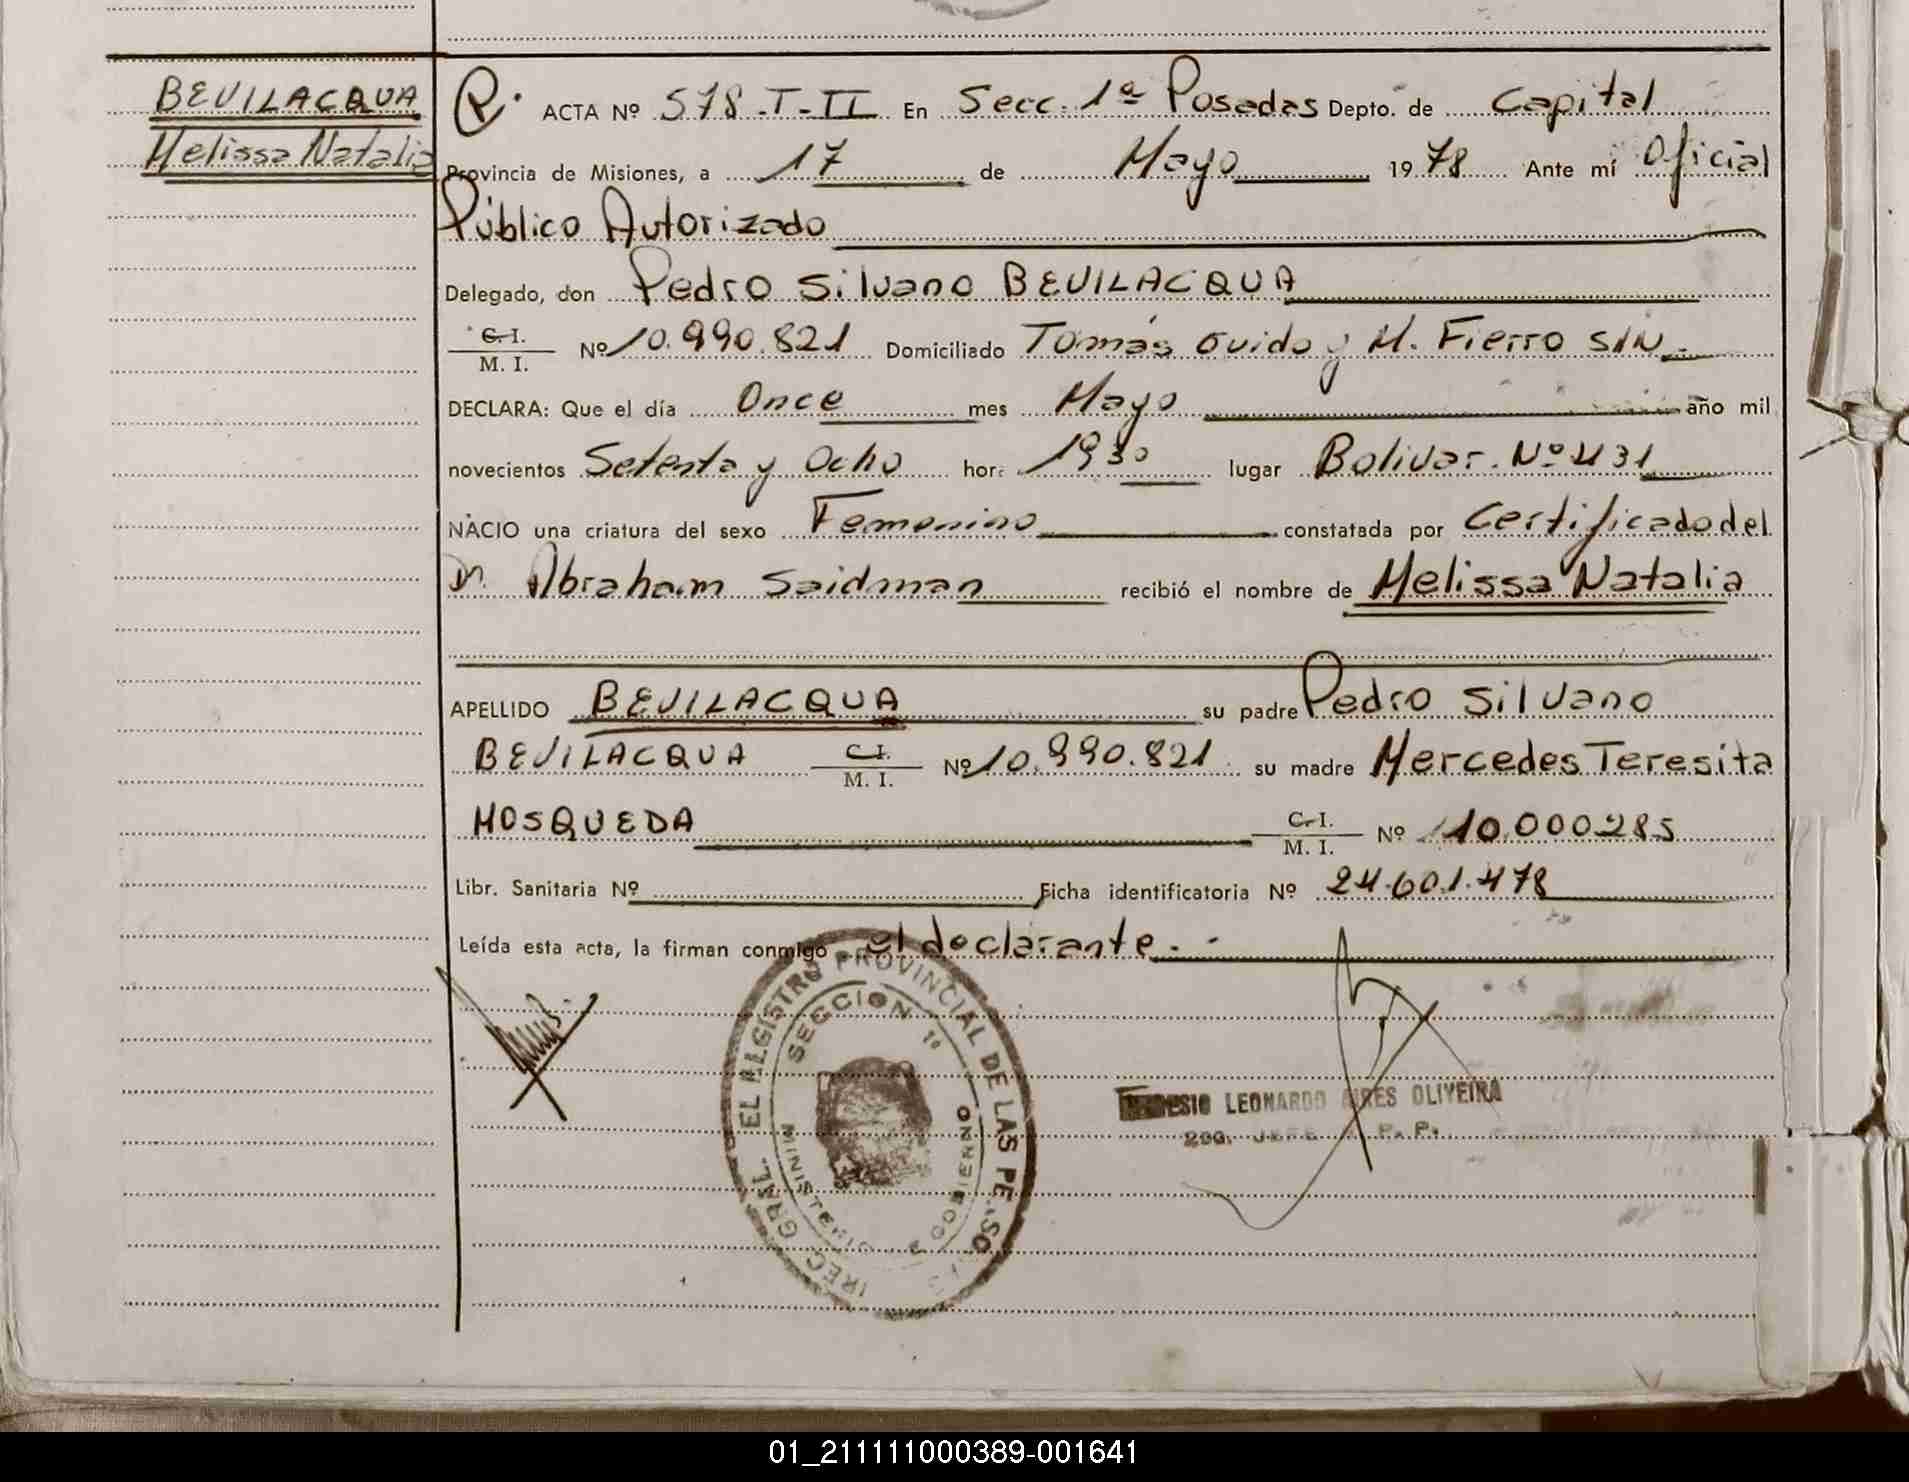 BEVILACQUA
Melissa Natalia
ACTA Nº 578-T-II En Secc. 1ª Posadas Depto. de Capital
Provincia de Misiones, a 17 de Mayo 1978 Ante mí Oficial
Público Autorizado
Delegado, don Pedro Silvano BEVILACQUA
C. I.
M. I. Nº 10.990.821 Domiciliado Tomás Guido y M. Fierro S/N.
DECLARA: Que el día Once mes Mayo año mil
novecientos Setenta y Ocho hora 1930 lugar Bolivar. Nº 431
NACIO una criatura del sexo Femenino constatada por Certificado del
Dr. Abraham Saidman recibió el nombre de Melissa Natalia
APELLIDO BEVILACQUA su padre Pedro Silvano
BEVILACQUA C.I.
M. I. Nº 10.990.821 su madre Mercedes Teresita
MOSQUEDA C. I.
M. I. Nº 10.000285
Libr. Sanitaria Nº Ficha identificatoria Nº 24.601.478
Leída esta acta, la firman conmigo el declarante.-
EL REGISTRO PROVINCIAL DE LAS
SECCION 1ª
MINISTERIO GOBIERNO
LEONARDO AIRES OLIVEIRA
2DO. JEFE R. P. P.
01_211111000389-001641